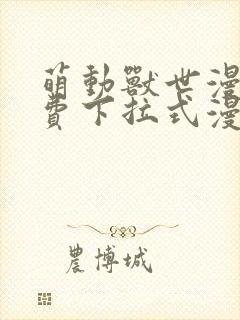 萌動獸世漫
費下拉式漫
農博城